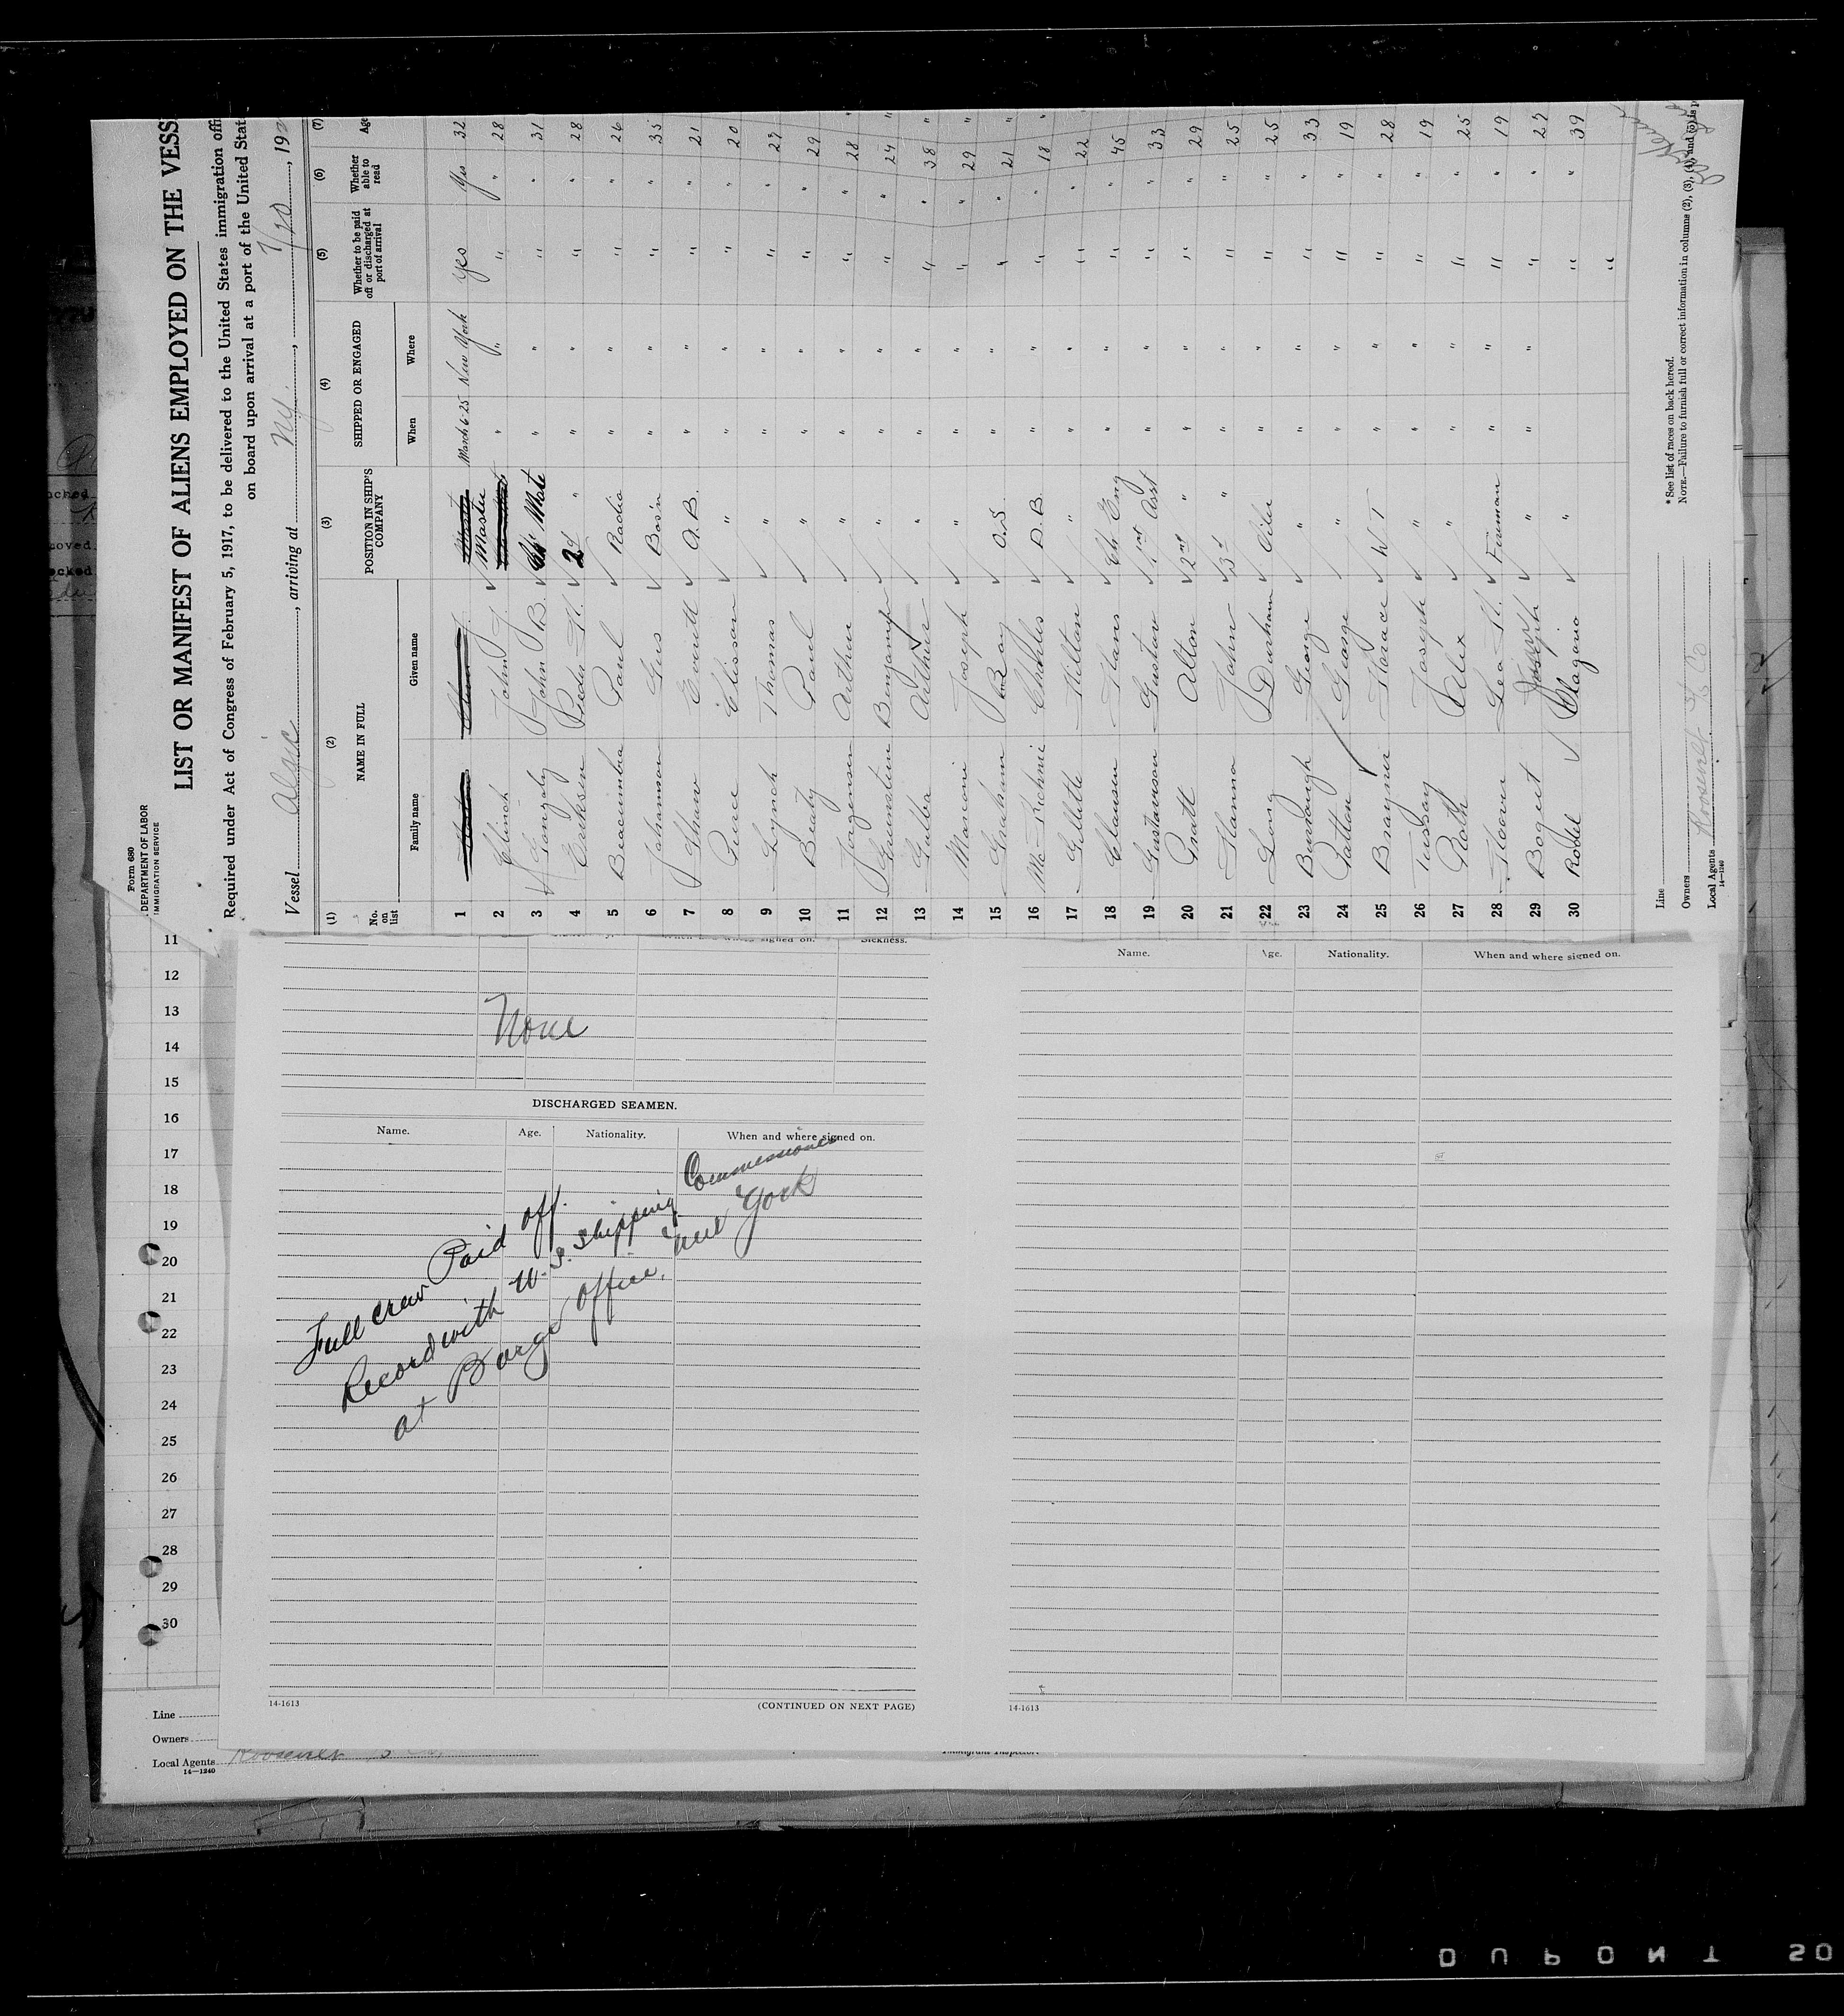 Form 680
DEPARTMENT OF LABOR
IMMIGRATION SERVICE
LIST OR MANIFEST OF ALIENS EMPLOYED ON THE VESS
Required under Act of Congress of February 5, 1917, to be delivered to the United States immigration offi
on board upon arrival at a port of the United Stat
Vessel Algic, arriving at N.Y., 192
(1) (2) (3) (4) (5) (6) (7)
No. on list NAME IN FULL POSITION IN SHIP'S COMPANY SHIPPED OR ENGAGED Whether to be paid off or discharged at port of arrival Whether able to read Age
Family name Given name When Where
1 Master March 6-25 New York yes Yes 32
2 Clinch John J. Master " " " " 28
3 Gonzaly John B. Ch. Mate " " " " 31
4 Erickson Peder H. 2d " " " " " 28
5 Beacumbra Paul Radio " " " " 26
6 Johannson Gus Bos'n " " " " 35
7 Shaw Everett A.B. " " " " 21
8 Pierce Elisson " " " " " 20
9 Lynch Thomas " " " " " 27
10 Beaty Paul " " " " " 29
11 Jorgensen Arthur " " " " " 28
12 Greenstien Benjamin " " " " " 24
13 Gulba Arthur " " " " " 38
14 Marconi Joseph " " " " " 29
15 Graham Roy O.S. " " " " 21
16 Mc-Richmi Charles D.B. " " " " 18
17 Gillette Milton " " " " " 22
18 Clausen Hans Ch. Eng " " " " 45
19 Gustavson Gustav 1st Asst " " " " 33
20 Pratt Alton 2nd " " " " " 29
21 Hanna John 3d " " " " " 25
22 Long Durham Oiler " " " " 25
23 Burdaugh George " " " " " 33
24 Patton George " " " " " 19
25 Braynia Horace W T " " " " 28
26 Tussay Joseph " " " " " 19
27 Roth Alex " " " " " 25
28 Hoover Leo H. Fireman " " " " 19
29 Boquet Joseph " " " " " 27
30 Rodel Blagino " " " 39
* See list of races on back hereof.
NOTE.—Failure to furnish full or correct information in columns (2), (3), (4), and (5) is p
Line
Owners
Local Agents Roosevelt SS Co
14—1240
11
12
13
14
15
16
17
18
19
20
21
22
23
24
25
26
27
28
29
30
When and where signed on. Sickness.
None
DISCHARGED SEAMEN.
Name. Age. Nationality. When and where signed on.
Full crew Paid off.
Record with U.S. Shipping Commissioner
at Barge Office, New York
14-1613 (CONTINUED ON NEXT PAGE)
Name. Age. Nationality. When and where signed on.
14-1613
Line
Owners
Local Agents Roosevelt
14—1240
Immigrant Inspector.
DUPONT SO